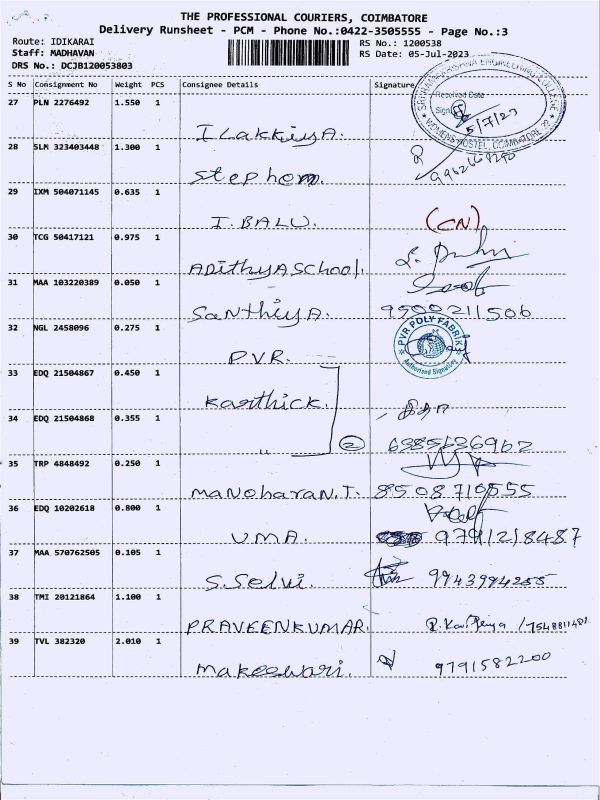 THE PROFESSIONAL COURIERS, COIMBATORE
Delivery Runsheet - PCM - Phone No.:0422-3505555 - Page No.:3
Route: IDIKARAI
RS No.: 1200538
Staff: MADHAVAN
RS Date: 05-Jul-2023
DRS No.: DCJB120053803
S No Consignment No Weight PCS Consignee Details Signature
SRI RAMAKRISHNA ENGINEERING COLLEGE
Received Date
Sign
5/7/23
WOMENS HOSTEL, COIMBATORE-22
27 PLN 2276492 1.550 1
ILakkiyA.
28 SLM 323403448 1.300 1
Stephen.
29 IXM 504071145 0.635 1
I.BALU. (CN)
30 TCG 50417121 0.975 1
ADithyA School.
31 MAA 103220389 0.050 1
SanthiyA. 9500211506
32 NGL 2458096 0.275 1
P.V.R. PVR POLY FABRIK
Authorised Signatory
33 EDQ 21504867 0.450 1
Karthick.
34 EDQ 21504868 0.355 1
,, 2 6385636962
35 TRP 4848492 0.250 1
Manoharan.T. 8508710555
36 EDQ 10202618 0.800 1
UMA. 9791218487
37 MAA 570762505 0.105 1
S.Selvi. 9943994255
38 TMI 20121864 1.100 1
PRAVEENKUMAR.
39 TVL 382320 2.010 1
Makeswari. 9791582200